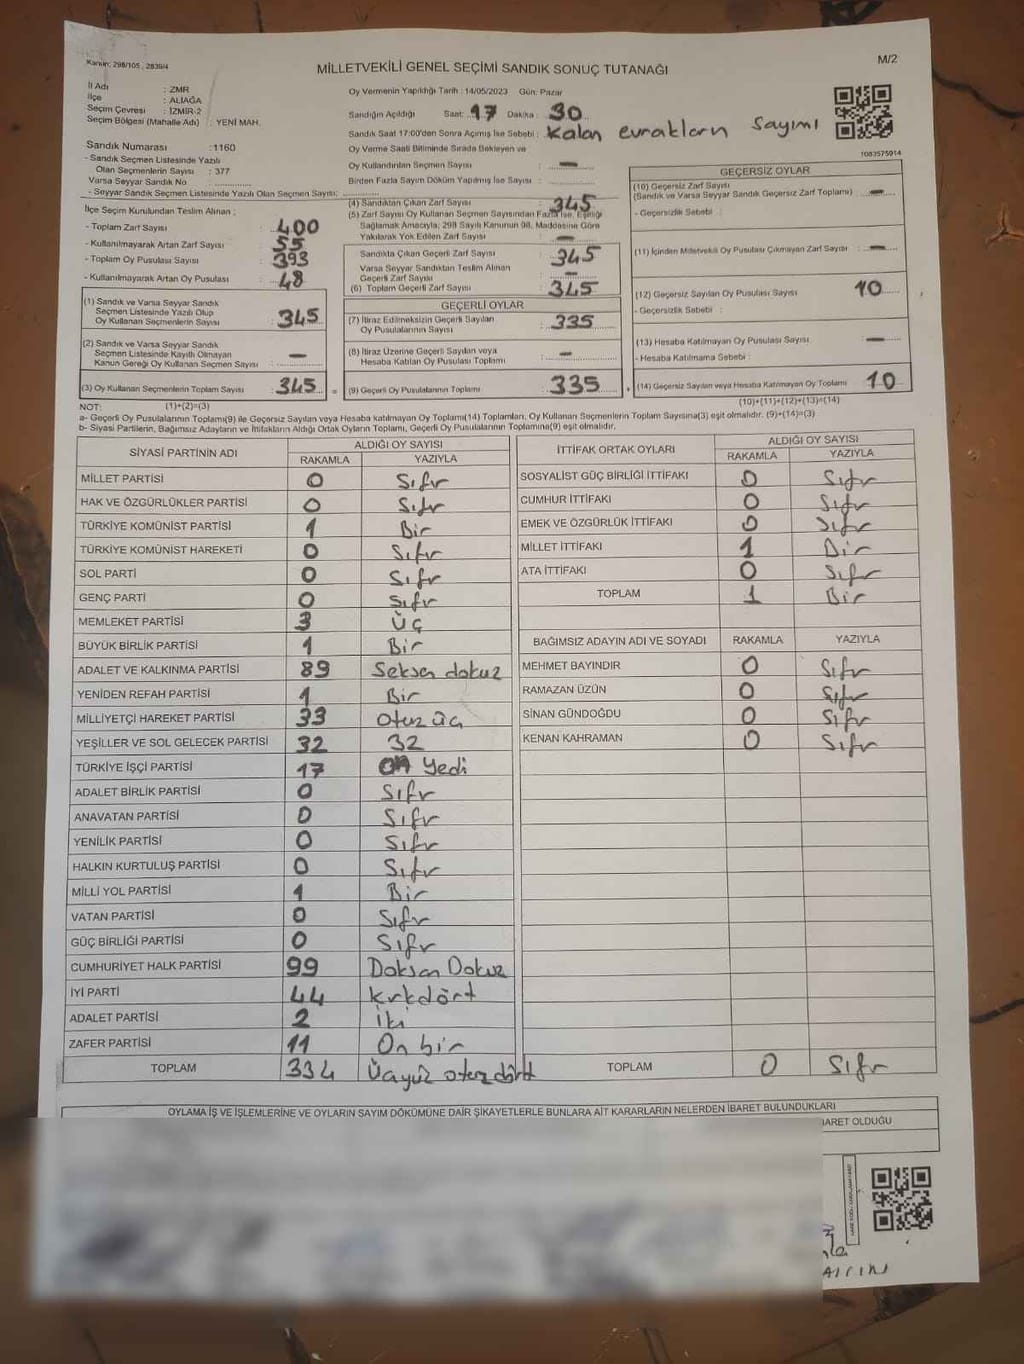 Kanun: 298/105, 2839/4
M/2
MİLLETVEKİLİ GENEL SEÇİMİ SANDIK SONUÇ TUTANAĞI
İl Adı : ZMR
İlçe : ALİAĞA
Seçim Çevresi : İZMİR-2
Seçim Bölgesi (Mahalle Adı) : YENİ MAH.
Sandık Numarası :1160
- Sandık Seçmen Listesinde Yazılı
Olan Seçmenlerin Sayısı : 377
Varsa Seyyar Sandık No
- Seyyar Sandık Seçmen Listesinde Yazılı Olan Seçmen Sayısı:
Oy Vermenin Yapıldığı Tarih : 14/05/2023 Gün: Pazar
Sandığın Açıldığı Saat: 17 Dakika : 30
Sandık Saat 17:00'den Sonra Açımış İse Sebebi : Kalan evrakların sayımı
Oy Verme Saati Bitiminde Sırada Bekleyen ve
Oy Kullandırılan Seçmen Sayısı : —
Birden Fazla Sayım Döküm Yapılmış İse Sayısı :
1083575914
İlçe Seçim Kurulundan Teslim Alınan :
- Toplam Zarf Sayısı : 400
- Kullanılmayarak Artan Zarf Sayısı : 55
- Toplam Oy Pusulası Sayısı : 393
- Kullanılmayarak Artan Oy Pusulası : 48
(1) Sandık ve Varsa Seyyar Sandık
Seçmen Listesinde Yazılı Olup
Oy Kullanan Seçmenlerin Sayısı : 345
(2) Sandık ve Varsa Seyyar Sandık
Seçmen Listesinde Kayıtlı Olmayan
Kanun Gereği Oy Kullanan Seçmen Sayısı : —
(3) Oy Kullanan Seçmenlerin Toplam Sayısı : 345 =
(4) Sandıktan Çıkan Zarf Sayısı : 345
(5) Zarf Sayısı Oy Kullanan Seçmen Sayısından Fazla İse, Eşitliği
Sağlamak Amacıyla; 298 Sayılı Kanunun 98. Maddesine Göre
Yakılarak Yok Edilen Zarf Sayısı : —
Sandıkta Çıkan Geçerli Zarf Sayısı : 345
Varsa Seyyar Sandıktan Teslim Alınan
Geçerli Zarf Sayısı : —
(6) Toplam Geçerli Zarf Sayısı : 345
GEÇERLİ OYLAR
(7) İtiraz Edilmeksizin Geçerli Sayılan
Oy Pusulalarının Sayısı : 335
(8) İtiraz Üzerine Geçerli Sayılan veya
Hesaba Katılan Oy Pusulası Toplamı : —
(9) Geçerli Oy Pusulalarının Toplamı : 335 +
GEÇERSİZ OYLAR
(10) Geçersiz Zarf Sayısı
(Sandık ve Varsa Seyyar Sandık Geçersiz Zarf Toplamı) : —
- Geçersizlik Sebebi :
(11) İçinden Milletvekili Oy Pusulası Çıkmayan Zarf Sayısı : —
(12) Geçersiz Sayılan Oy Pusulası Sayısı : 10
- Geçersizlik Sebebi :
(13) Hesaba Katılmayan Oy Pusulası Sayısı : —
- Hesaba Katılmama Sebebi :
(14) Geçersiz Sayılan veya Hesaba Katılmayan Oy Toplamı : 10
NOT: (1)+(2)=(3) (10)+(11)+(12)+(13)=(14)
a- Geçerli Oy Pusulalarının Toplamı(9) ile Geçersiz Sayılan veya Hesaba katılmayan Oy Toplamı(14) Toplamları, Oy Kullanan Seçmenlerin Toplam Sayısına(3) eşit olmalıdır. (9)+(14)=(3)
b- Siyasi Partilerin, Bağımsız Adayların ve İttifakların Aldığı Ortak Oyların Toplamı, Geçerli Oy Pusulalarının Toplamına(9) eşit olmalıdır.
SİYASİ PARTİNİN ADI ALDIĞI OY SAYISI
RAKAMLA YAZIYLA
MİLLET PARTİSİ 0 Sıfır
HAK VE ÖZGÜRLÜKLER PARTİSİ 0 Sıfır
TÜRKİYE KOMÜNİST PARTİSİ 1 Bir
TÜRKİYE KOMÜNİST HAREKETİ 0 Sıfır
SOL PARTİ 0 Sıfır
GENÇ PARTİ 0 Sıfır
MEMLEKET PARTİSİ 3 Üç
BÜYÜK BİRLİK PARTİSİ 1 Bir
ADALET VE KALKINMA PARTİSİ 89 Seksen dokuz
YENİDEN REFAH PARTİSİ 1 Bir
MİLLİYETÇİ HAREKET PARTİSİ 33 Otuz üç
YEŞİLLER VE SOL GELECEK PARTİSİ 32 32
TÜRKİYE İŞÇİ PARTİSİ 17 On yedi
ADALET BİRLİK PARTİSİ 0 Sıfır
ANAVATAN PARTİSİ 0 Sıfır
YENİLİK PARTİSİ 0 Sıfır
HALKIN KURTULUŞ PARTİSİ 0 Sıfır
MİLLİ YOL PARTİSİ 1 Bir
VATAN PARTİSİ 0 Sıfır
GÜÇ BİRLİĞİ PARTİSİ 0 Sıfır
CUMHURİYET HALK PARTİSİ 99 Doksan Dokuz
İYİ PARTİ 44 Kırkdört
ADALET PARTİSİ 2 İki
ZAFER PARTİSİ 11 On bir
TOPLAM 334 Üçyüz otuz dört
İTTİFAK ORTAK OYLARI ALDIĞI OY SAYISI
RAKAMLA YAZIYLA
SOSYALİST GÜÇ BİRLİĞİ İTTİFAKI 0 Sıfır
CUMHUR İTTİFAKI 0 Sıfır
EMEK VE ÖZGÜRLÜK İTTİFAKI 0 Sıfır
MİLLET İTTİFAKI 1 Bir
ATA İTTİFAKI 0 Sıfır
TOPLAM 1 Bir
BAĞIMSIZ ADAYIN ADI VE SOYADI RAKAMLA YAZIYLA
MEHMET BAYINDIR 0 Sıfır
RAMAZAN ÜZÜN 0 Sıfır
SİNAN GÜNDOĞDU 0 Sıfır
KENAN KAHRAMAN 0 Sıfır
TOPLAM 0 Sıfır
OYLAMA İŞ VE İŞLEMLERİNE VE OYLARIN SAYIM DÖKÜMÜNE DAİR ŞİKAYETLERLE BUNLARA AİT KARARLARIN NELERDEN İBARET BULUNDUKLARI
İBARET OLDUĞU